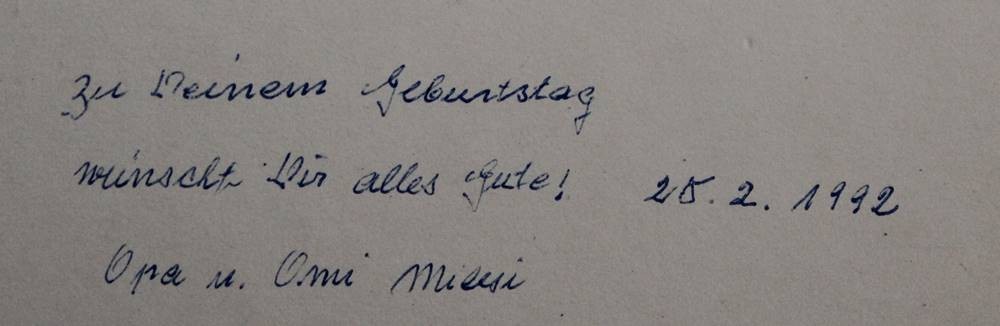 Zu Deinem Geburtstag
wünscht Dir alles Gute! 25.2.1992
Opa u. Omi